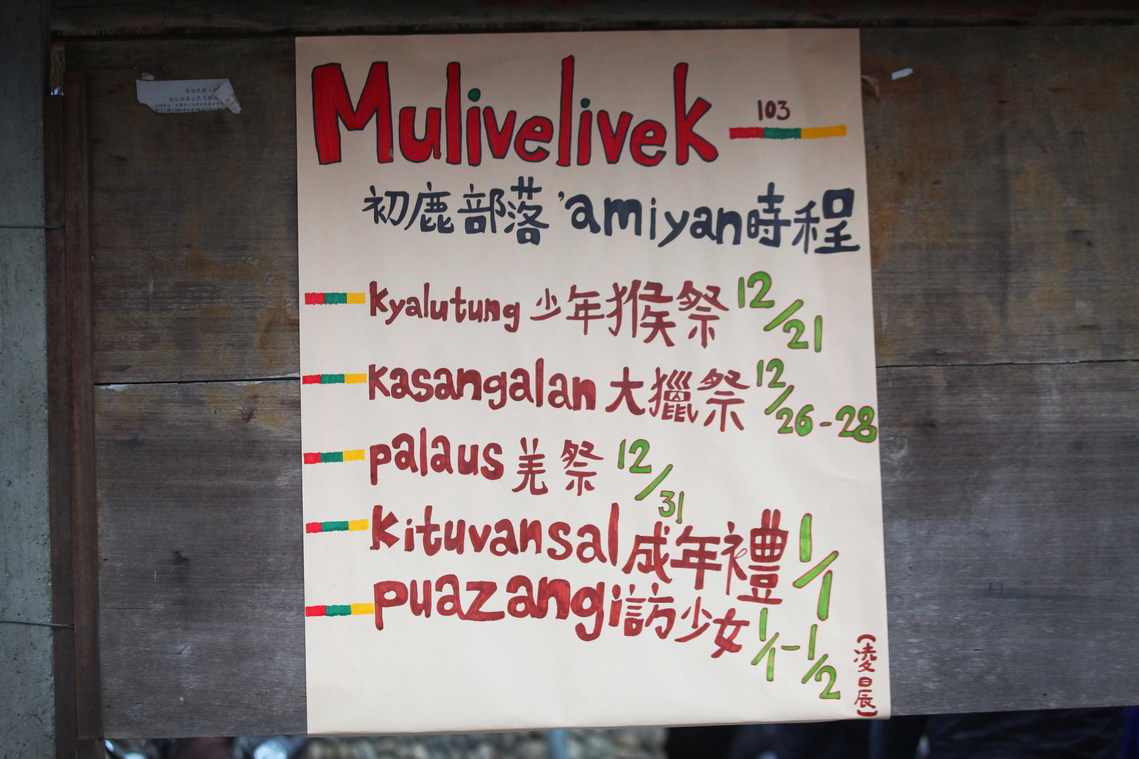 Mulivelivek 103
初鹿部落 'amiyan時程
kyalutung 少年猴祭 12/21
kasangalan 大獵祭 12/26-28
palaus 羌祭 12/31
kituvansal 成年禮 1/1
puazangi訪少女 1/1-1/2
(凌晨)